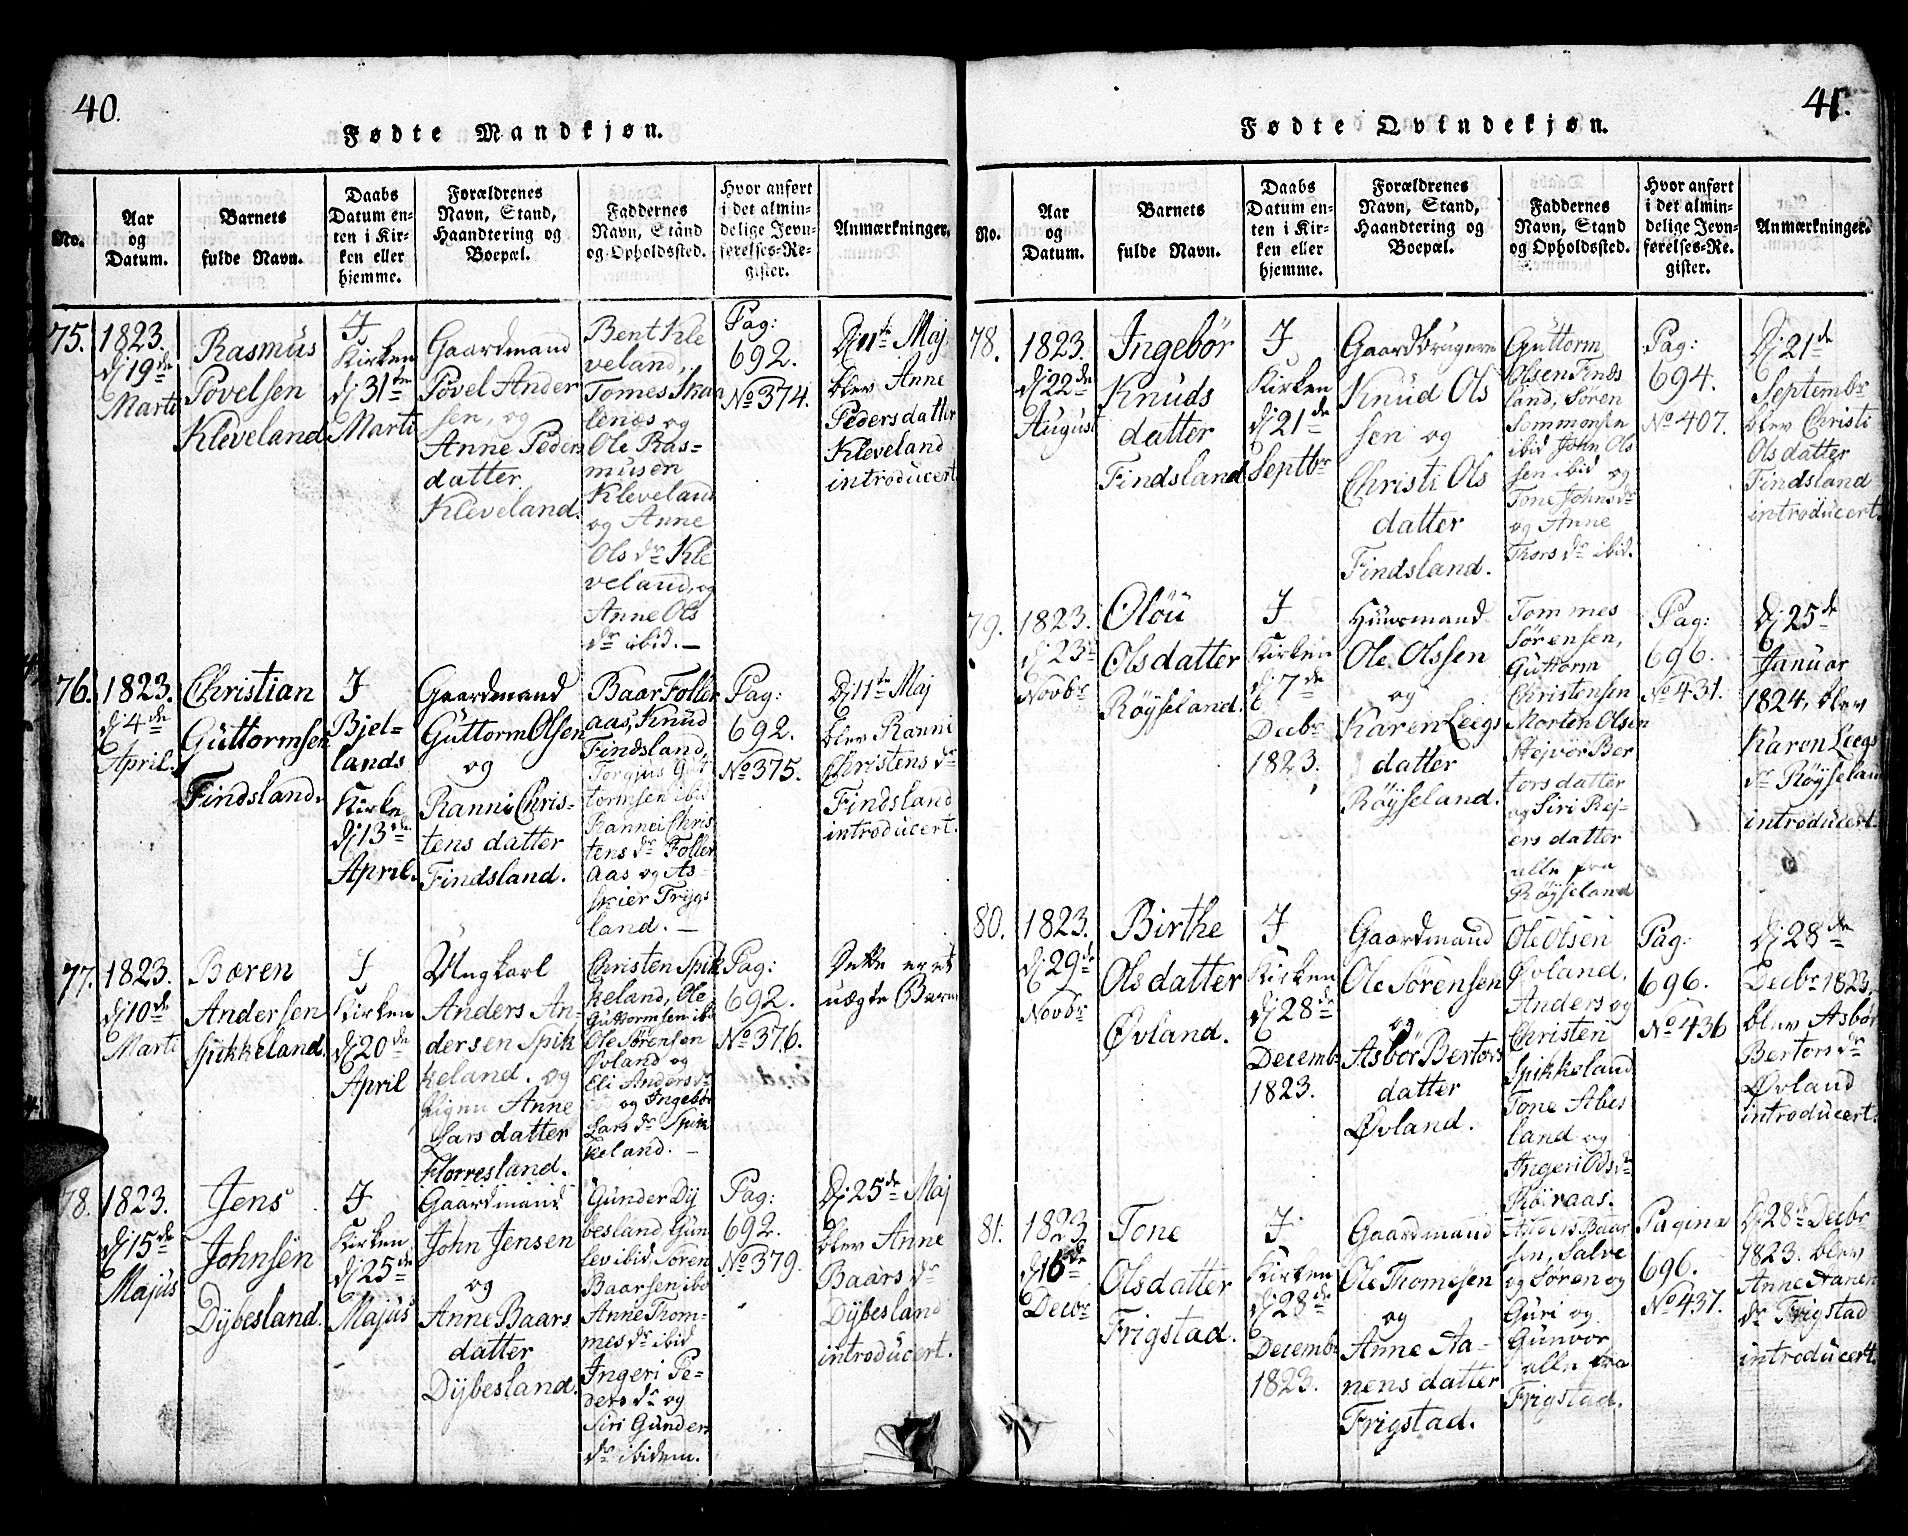 40.
Fødte Mandkjøn.
No.
Aar
og
Datum.
Barnets
fulde Navn.
Daabs
Datum en-
ten i Kir-
ken eller
hjemme.
Forældrenes
Navn, Stand,
Haandtering og
Boepæl.
Faddernes
Navn, Stand
og Opholdssted.
Hvor anført
i det almin-
delige Jevn-
førelses-Re-
gister.
Anmærkninger.
75.
1823.
dj 19de
Marti
Rasmus
Povelsen
Kleveland
I
Kirken
dj 31te
Marti
Gaardmand
Povel Ander
sen, og
Anne Peders
datter
Kleveland.
Bent Kle
veland,
Tomes Skaa
lenes og
Ole Ras-
musen
Kleveland
og Anne
Ols dr Kle
veland, og
Anne Ols
dr ibid. —
Pag:
692.
No 374.
Dj 11te Maj
blev Anne
Pedersdatter
Kleveland
introducert.
76.
1823.
dj 4de
April.
Christian
Guttormsen
Findsland.
I
Bjel-
lands
Kirke
dj 13de
April.
Gaardmand
Guttorm Olsen
og
Ranni Chris-
tens datter
Findsland.
Baar Foller
aas, Knud
Findsland,
Torgius Gut
tormsen ibid
Rannei Chris
tens dr Foller
aas og As-
skier Trygs
land. —
Pag:
692.
No 375.
Dj 11te Maj
blev Ranni
Christens dr
Findsland
introducert.
77.
1823.
dj 10de
Marti
Bæren
Andersen
Spikkeland.
I
Kirken
dj 20de
April
Ungkarl
Anders An-
dersen Spik
keland. og
Pigen Anne
Lars datter
Florresland.
Christen Spik
keland, Ole
Guttormsen ibd
Ole Sørensen
Øvland og
Eli Anders dr
og Ingebør
Lars dr Spik
keland. —
Pag:
692.
No 376.
Dette er et
uægte Barn
78.
1823.
dj 15de
Majus
Jens
Johnsen
Dybesland.
I
Kirken
dj 25de
Majus
Gaardmand
John Jensen
og
Anne Baars
datter
Dybesland.
Gunder Dy
besland, Gun
lev ibid, Søren
Baarsen ibd
Anne Thom-
mes dr ibid
Ingeri Pe-
ders dr og
Siri Gunders
dr ibidem.
Pag:
692.
No 379.
Dj 25de Maj
blev Anne
Baars dr
Dybesland
introducert.
41.
Fødte Qvindekjøn.
No.
Aar
og
Datum.
Barnets
fulde Navn.
Daabs
Datum en-
ten i Kir-
ken eller
hjemme.
Forældrenes
Navn, Stand,
Haandtering og
Boepæl.
Faddernes
Navn, Stand
og Opholdssted.
Hvor anført
i det almin-
delige Jevn-
førelses-Re-
gister.
Anmærkninger.
78.
1823.
dj 22de
August
Ingebør
Knuds
datter
Findsland
I
Kirken
dj 21de
Septbr
Gaardbrugere
Knud Ols
sen og
Christi Ols
datter
Findsland.
Guttorm
Olsen Finds
land, Søren
Sommonsen
ibid John Ols
sen ibid og
Tone Johns dr
og Anne
Thors dr ibid.
Pag:
694.
No 407.
Dj 21de
Septembr
blev Christi
Olsdatter
Findsland
introducert.
79.
1823.
dj 23de
Novbr
Oløu
Olsdatter
Røysland.
I
Kirken
dj 7de
Decbr
1823.
Huusmand
Ole Olssen
og
Karen Leegs
datter
Røyseland.
Tommes
Sørensen,
Guttorm
Christensen
Morten Olsen
Hejvor Ber
tors datter
og Siri Rej-
ers datter
alle fra
Røyseland
Pag:
696.
No 431.
Dj 25de
Januar
1824, blev
Karen Leegs
dr Røyseland
introducert.
80.
1823.
dj 29de
Novbr
Birthe
Olsdatter
Øvland.
I
Kirken
dj 28de
Decembr
1823.
Gaardmand
Ole Sørensen
og
Asbør Bertors
datter
Øvland.
Ole Olsen
Øvland.
Anders og
Christen
Spikkeland
Tone Abes
land og
Ingeri Ods dr
Røiraas.
Pag:
696.
No 436
Dj 28de
Decbr 1823
blev Asbør
Bertors dr
Øvland
introducert.
81.
1823
dj 16de
Decbr
Tone
Olsdatter
Frigstad.
I
Kirken
dj 28de
Decembr
1823.
Gaardmand
Ole Thomesen
og
Anne Aa-
nens datter
Frigstad.
Baar
sen, Salve
og Søren og
Guri og
Gunvor
alle fra
Frigstad.
Pagina
696.
No 437.
Dj 28de Decbr
1823. blev
Anne Aanen
dr Frigstad
introducert.